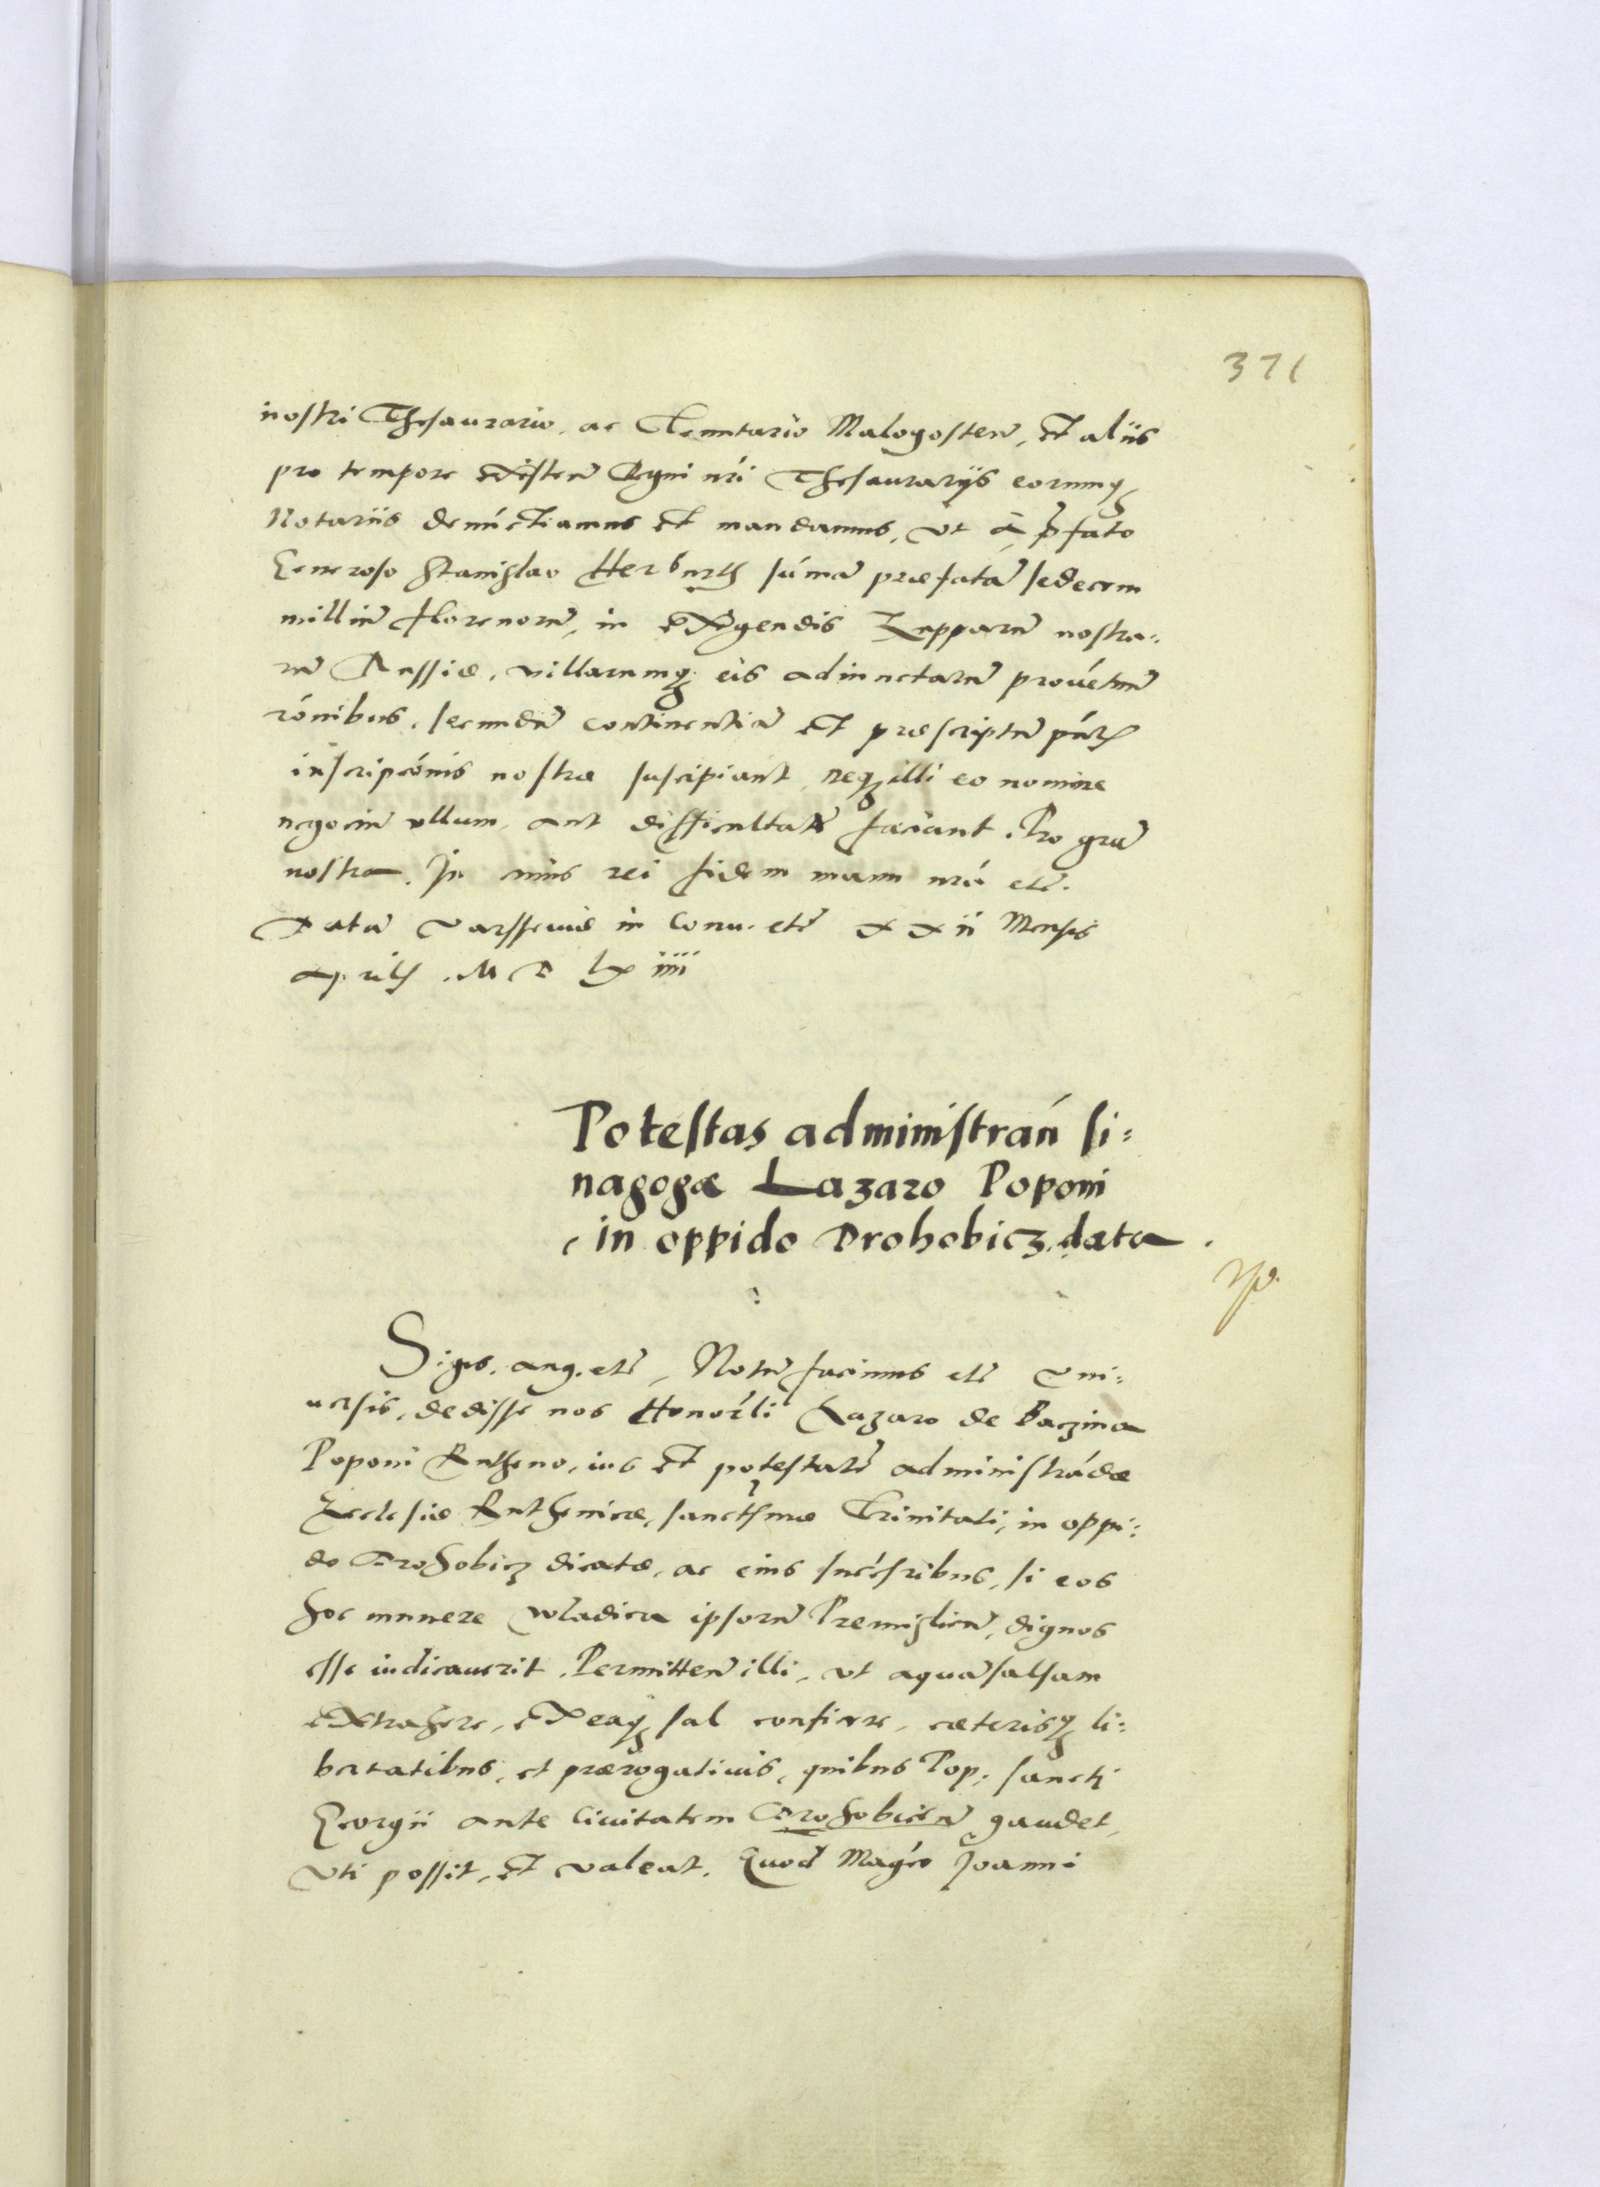 371
nostri Thesaurario, ac Tenutario Malogosteñ, et aliis
pro tempore existeñ Regni nri Thesaurariis eorumq
Notariis denunctiamus et mandamus, ut à prefato
Generoso Stanislao Herburth sumã præfatã sedecim
milliũ florenorũ, in exigendis Zupparũ nostra:
rũ Russiæ, villarumq eis adiunctarũ provetuũ
rónibus, secundũ continentiã et præscriptũ pñtis
inscripcionis nostræ suscipiant, neq illi eo nomine
negociũ ullum, aut difficultatẽ faciant. Pro grã
nostra. In cuius rei fidem manu nrá etc.
Datũ Varssevie in Conv. etc XXii Mensis
Aprilis. M D LX iiii
Potestas administrań si:
nagogæ Lazaro Poponi
in oppido Drohobicz data.
Sigis. aug. etc, Notũ facimus etc Uni:
versis, dedisse nos Honorli Lazaro de Baczina
Poponi Rutheno, ius et potestatẽ administrádæ
Ecclesiæ Ruthenicæ, sanctissimæ Trinitati, in oppi:
do Drohobicz dicatæ, ac eius succesribus, si eos
hoc munere Wladica ipsorũ Premisliẽn, dignos
esse iudicaverit. Permitteñ illi, ut aquã salsam
extrahere, ex eaq sal conficere, cæterisq li:
bertatibus, et prærogativis, quibus Pop: sancti
Georgii ante Civitatem Drohobiceñ gaudet,
Uti possit, et valeat. Quod Magco Joanni